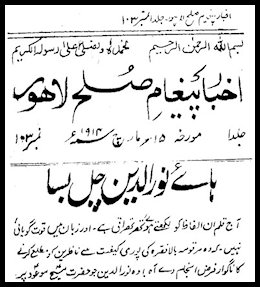 اخبار پیغام صلح لاہور، جلد ا نمبر ۱۰۳
بسم اللہ الرحمٰن الرحیم نحمدہ و نصلی علیٰ رسولہ الکریم
اخبار پیغام صلح لاہور
جلد ا مورخہ ۱۵ مارچ ۱۹۱۴ء نمبر ۱۰۳
ہائے نور الدین چل بسا
آج قلم ان الفاظ کو لکھتے ہوئے تھراتی ہے۔ اور زبان میں قوت گویائی
نہیں۔ کہ وہ مرقومہ بالا فقرہ کی پوری کیفیت سے ناظرین کو مطلع کرنے
کا ناگوار فرض انجام دے آہ! وہ نور الدین جو حضرت مسیح موعود پر